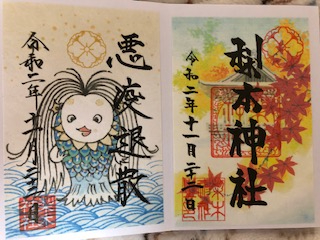 悪疫退散
令和二年十一月二十三日
梨木神社
令和二年十一月二十三日